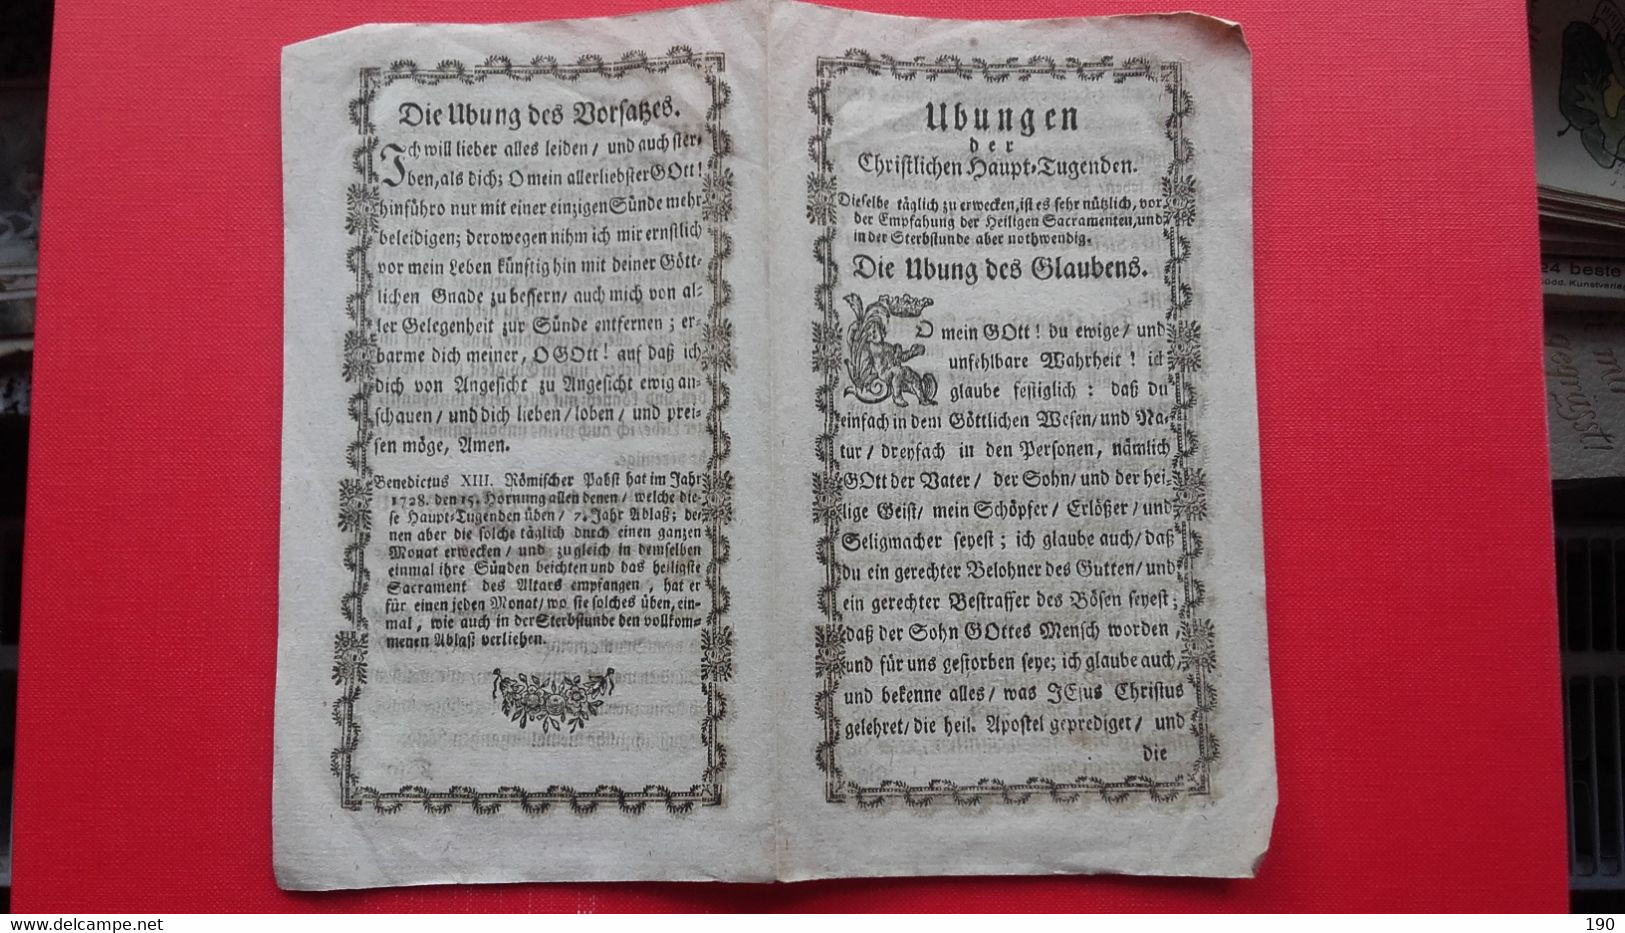 Die Ubung des Vorsatzes.
Ich will lieber alles leiden/ und auch ster-
ben, als dich; O mein allerliebster GOtt!
hinführo nur mit einer einzigen Sünde mehr
beleidigen; derowegen nihm ich mir ernstlich
vor mein Leben künftighin mit deiner Gött-
lichen Gnade zu bessern/ auch mich von al-
ler Gelegenheit zur Sünde entfernen; er-
barme dich meiner, O GOtt! auf daß ich
dich von Angesicht zu Angesicht ewig an-
schauen/ und dich lieben/ loben/ und prei-
sen möge, Amen.
Benedictus XIII. Römischer Pabst hat im Jahr
1728. den 15. Hornung allen denen/ welche die-
se Haupt-Tugenden üben/ 7. Jahr Ablaß; de-
nen aber die solche täglich durch einen ganzen
Monat erwecken/ und zugleich in demselben
einmal ihre Sünden beichten und das heiligste
Sacrament des Altars empfangen, hat er
für einen jeden Monat/ wo sie solches üben, ein-
mal, wie auch in der Sterbstunde den vollkom-
menen Ablaß verliehen.
Ubungen
der
Christlichen Haupt-Tugenden.
Dieselbe täglich zu erwecken, ist es sehr nützlich, vor
der Empfahung der Heiligen Sacramenten, und
in der Sterbstunde aber nothwendig.
Die Ubung des Glaubens.
O mein GOtt! du ewige/ und
unfehlbare Wahrheit! ich
glaube festiglich: daß du
einfach in dem Göttlichen Wesen/ und Na-
tur/ dreyfach in den Personen, nämlich
GOtt der Vater/ der Sohn/ und der hei-
lige Geist/ mein Schöpfer/ Erlößer/ und
Seligmacher seyest; ich glaube auch/ daß
du ein gerechter Belohner des Gutten/ und
ein gerechter Bestraffer des Bösen seyest;
daß der Sohn GOttes Mensch worden,
und für uns gestorben seye; ich glaube auch,
und bekenne alles/ was JEsus Christus
gelehret/ die heil. Apostel geprediget/ und
die
24 beste
Kunstverlag
gegrüsst!
delcampe.net
190